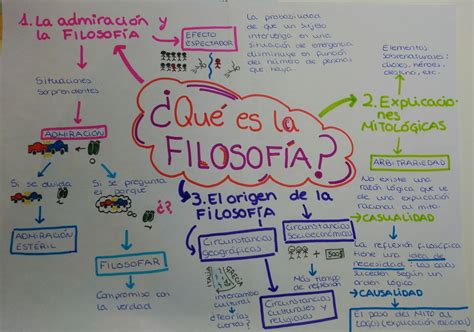 ¿Qué es la
FILOSOFÍA?
1. La admiración y
la FILOSOFÍA
EFECTO
ESPECTADOR
La probabilidad
de que un sujeto
intervenga en una
situación de emergencia
disminuye en función
del número de personas
que haya
Situaciones
sorprendentes
ADMIRACIÓN
Si se olvida
Si se pregunta
el porqué
¿?
ADMIRACIÓN
ESTÉRIL
FILOSOFAR
Compromiso con
la verdad
2. Explicacio-
nes
MITOLÓGICAS
Elementos
sobrenaturales:
dioses, héroes,
destino, etc.
ARBITRARIEDAD
No existe una
razón lógica que le
dé una explicación
racional al mito
CASUALIDAD
La reflexión filosófica
tiene una idea de
necesidad: las cosas
suceden según un
orden lógico
CAUSALIDAD
El paso del mito al
logos (explicación racional)
3. El origen de la
FILOSOFÍA
Circunstancias
geográficas
GRECIA
Intercambio
cultural
¿Teorías
ciertas?
Circunstancias
culturales y
religiosas
Circunstancias
socioeconómicas
500$
Más tiempo
de reflexión